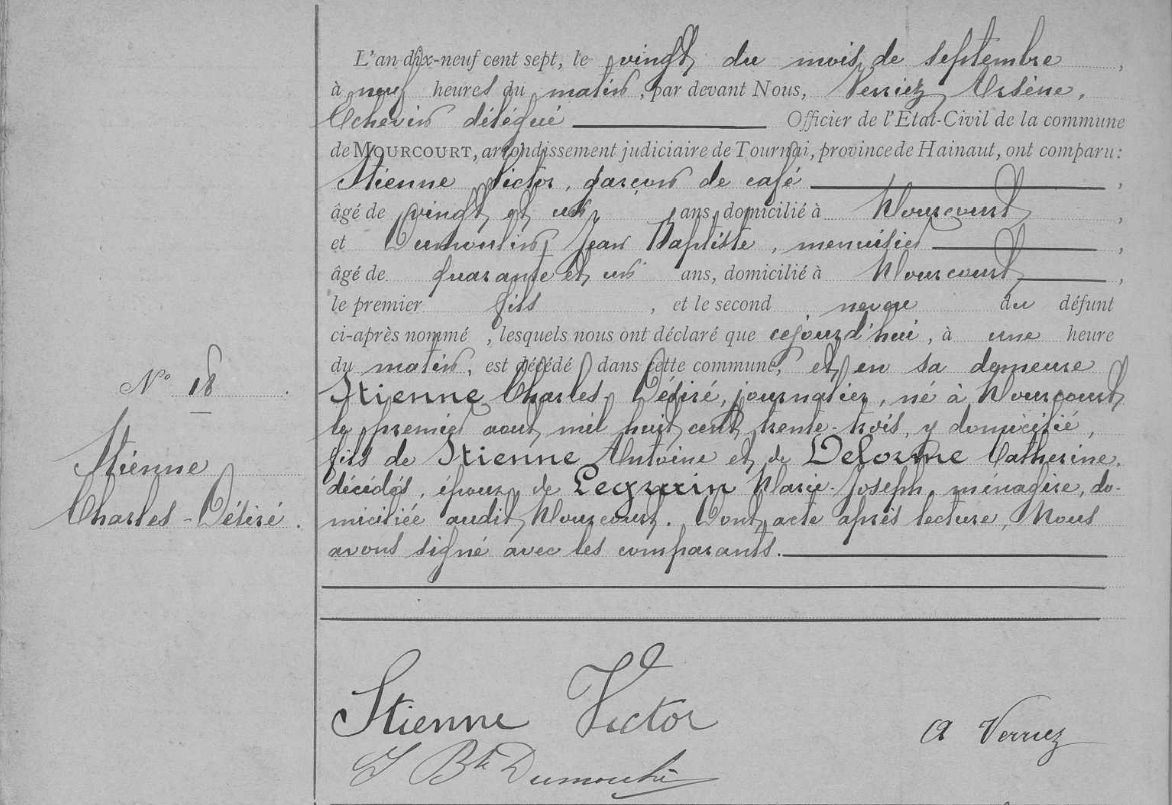 L'an dix-neuf cent sept, le vingt du mois de septembre,
à neuf heures du matin, par devant Nous, Verriez Arsène,
Echevin délégué Officier de l'Etat-Civil de la commune
de MOURCOURT, arrondissement judiciaire de Tournai, province de Hainaut, ont comparu :
Stienne Victor, garçon de café,
âgé de vingt et un ans, domicilié à Mourcourt,
et Dumoulin Jean Baptiste, menuisier,
âgé de quarante et un ans, domicilié à Mourcourt,
le premier fils, et le second neveu du défunt
ci-après nommé, lesquels nous ont déclaré que cejourd'hui, à une heure
du matin, est décédé dans cette commune, et en sa demeure
Stienne Charles-Désiré, journalier, né à Mourcourt
le premier aout mil huit cent trente-trois, y domicilié,
fils de Stienne Antoine et de Delorme Catherine,
décédés, époux de Legrain Marie-Joseph, ménagère, do-
miciliée audit Mourcourt. Dont acte après lecture, Nous
avons signé avec les comparants.
N° 18
Stienne
Charles-Désiré.
Stienne Victor
A Verriez
J Bte Dumoulin